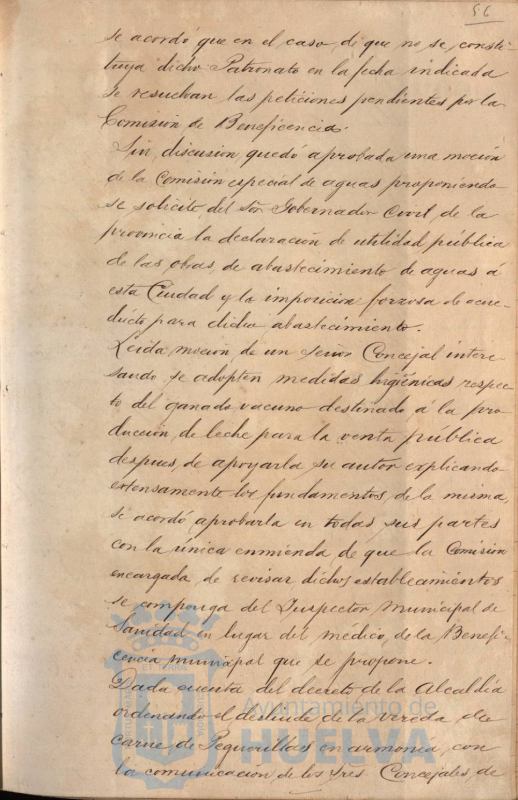 56
se acordó que en el caso, de que no se consti-
tuya dicho Patronato en la fecha indicada
se resuelvan las peticiones pendientes por la
Comision de Beneficencia.
Sin discusion quedó aprobada una moción
de la Comisión especial de aguas proponiendo
se solicite del Sor Gobernador Civil de la
provincia la declaración de utilidad pública
de las obras de abastecimiento de aguas á
esta Ciudad y la imposicion forzosa de acue-
ducto para dicho abastecimiento.
Leida moción de un señor Concejal intere-
sando se adopten medidas higiénicas respec-
to del ganado vacuno destinado á la pro-
ducción de leche para la venta pública
despues de apoyarla su autor explicando
extensamente los fundamentos de la misma,
se acordó aprobarla en todas sus partes
con la única enmienda de que la Comisión
encargada de revisar dichos establecimientos
se componga del Inspector municipal de
Sanidad en lugar del médico de la Benefi-
cencia municipal que se propone.
Dada cuenta del decreto de la Alcaldía
ordenando el deslinde de la vereda de
carne de Peguerillas en armonía con
la comunicación de los tres Concejales de
Ayuntamiento de
HUELVA